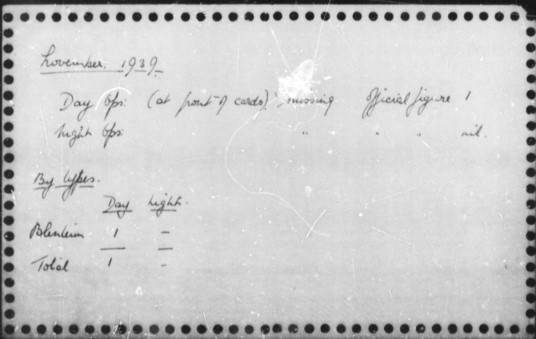 November, 1939.
Day Ops. (at front of cards) missing Official figure 1
Night Ops. " " " nil.
By types.
Day Night.
Blenheim 1 –
Total 1 –